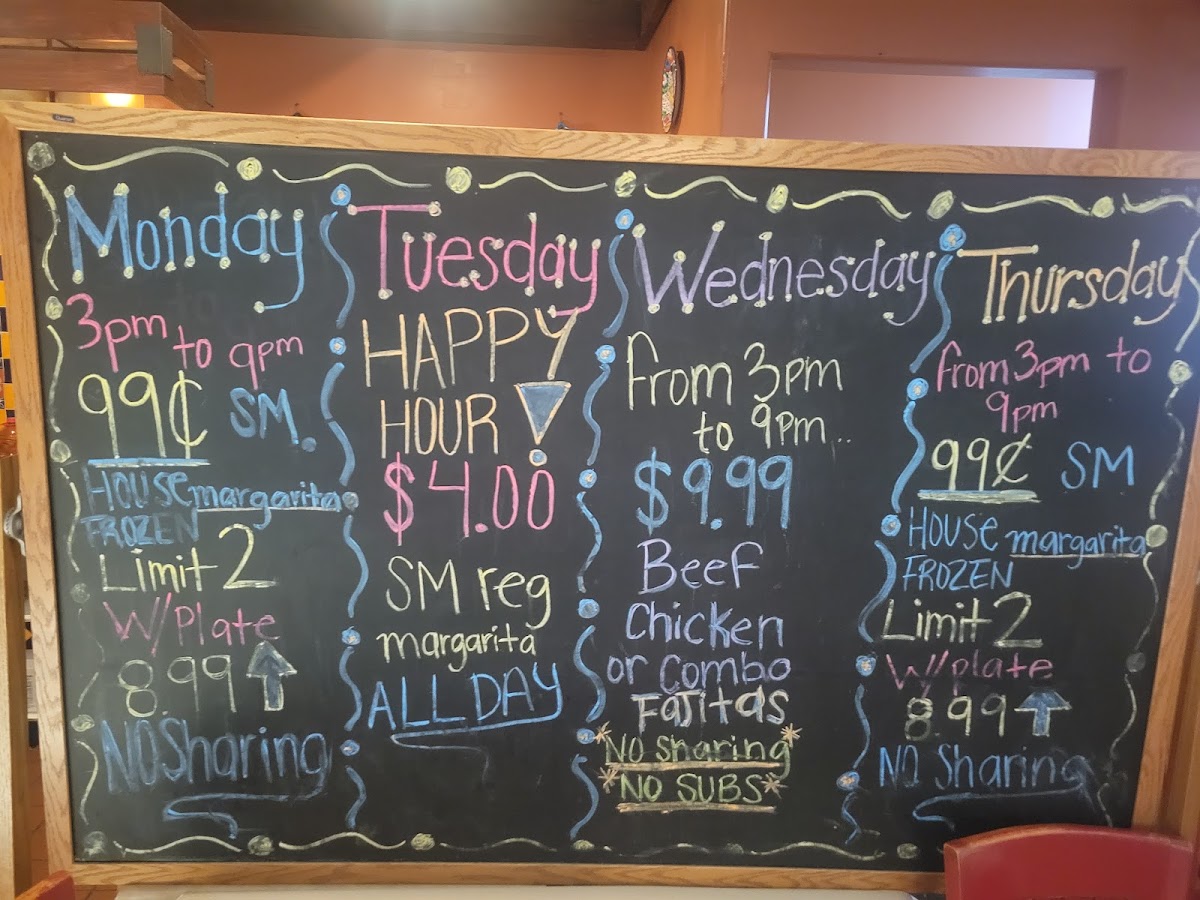 Monday
3pm to 9pm
99¢ SM.
HOUSE margarita
FROZEN
Limit 2
W/Plate
8.99
NO Sharing
Tuesday
HAPPY
HOUR
$4.00
SM reg
margarita
ALL DAY
Wednesday
From 3pm
to 9pm..
$9.99
Beef
Chicken
or Combo
Fajitas
*NO sharing*
*NO SUBS*
Thursday
From 3pm to
9pm
99¢ SM
HOUSE margarita
FROZEN
Limit 2
W/plate
8.99
NO Sharing